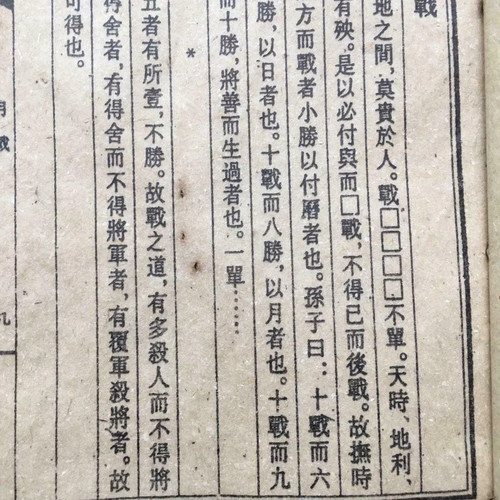 戰
地之間，莫貴於人。戰□□□□不單。天時、地利、
有殃。是以必付與而□戰，不得已而後戰。故撫時
方而戰者小勝以付曆者也。孫子曰：十戰而六
勝，以日者也。十戰而八勝，以月者也。十戰而九
而十勝，將善而生過者也。一單……
*
五者有所壹，不勝。故戰之道，有多殺人而不得將
得舍者，有得舍而不得將軍者，有覆軍殺將者。故
可得也。
月戰